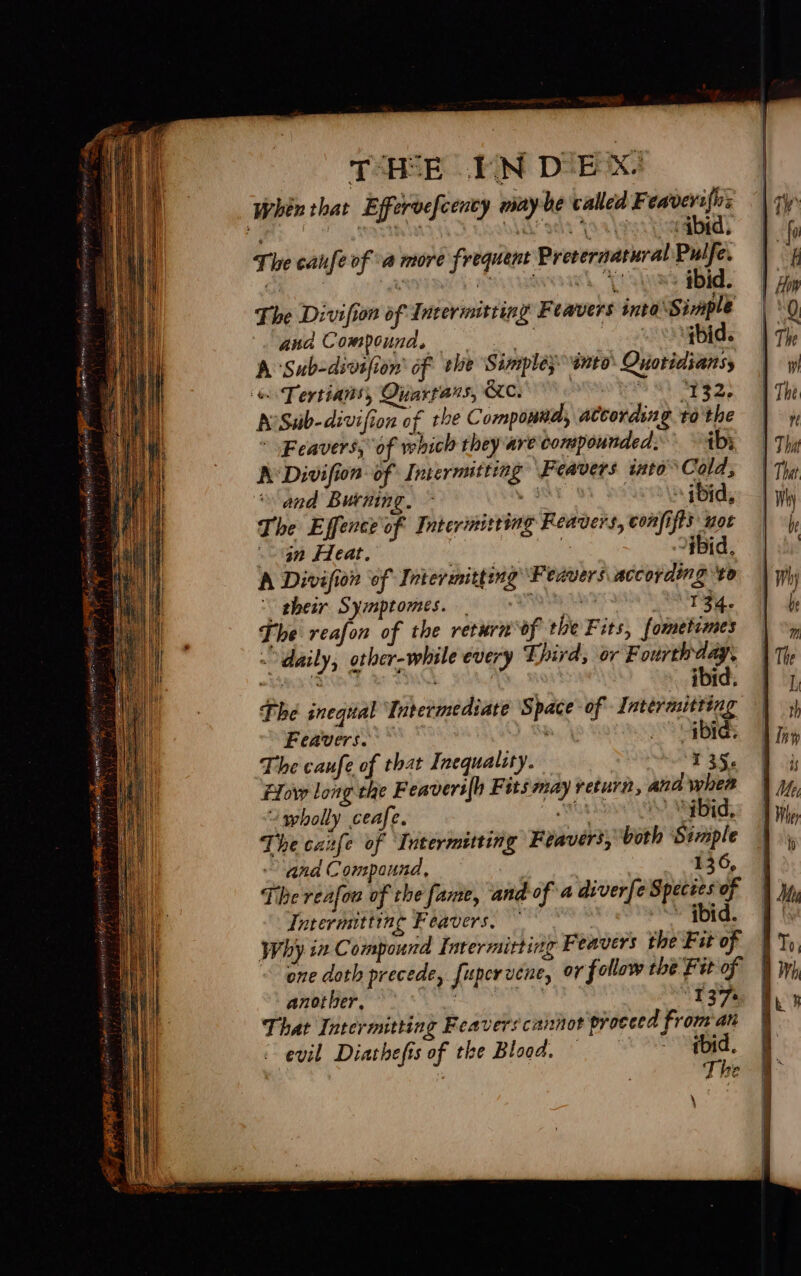 THE INDEX.
When that Efferveſcency may be called Feaveriſh;
ibid,
The cauſe of a more frequent Preternatural Pulſe.
ibid.
The Diviſion of Intermitting Feavers into Simple
and Compound. ibid.
A Sub-diviſion of the Simples into Quotidians,
Tertians, Quartans, &c. 132.
A Sub-diviſion of the Compound, according to the
Feavers, of which they are compounded. ib.
A Diviſion of Intermitting Feavers into Cold,
and Burning. ibid,
The Eſſence of Intermitting Feavers, conſiſts not
in Heat. ibid.
A Diviſion of Intermitting Feavers according to
their Symptomes. 134.
The reaſon of the return of the Fits, ſometimes
daily, other-while every Third, or Fourth day.
ibid.
The inequal Intermediate Space of Intermitting
Feavers. ibid.
The cauſe of that Inequality. 135.
How long the Feaveriſh Fits may return, and when
wholly ceaſe. ibid,
The cauſe of Intermitting Feavers, both Simple
and Compound, 136,
The reaſon of the ſame, and of a diverſe Species of
Intermitting Feavers. ibid.
Why in Compound Intermitting Feavers the Fit of
one doth precede, ſupervene, or follow the Fit of
another, 137.
That Intermitting Feavers cannot proceed from an
evil Diatheſis of the Blood. ibid.
The